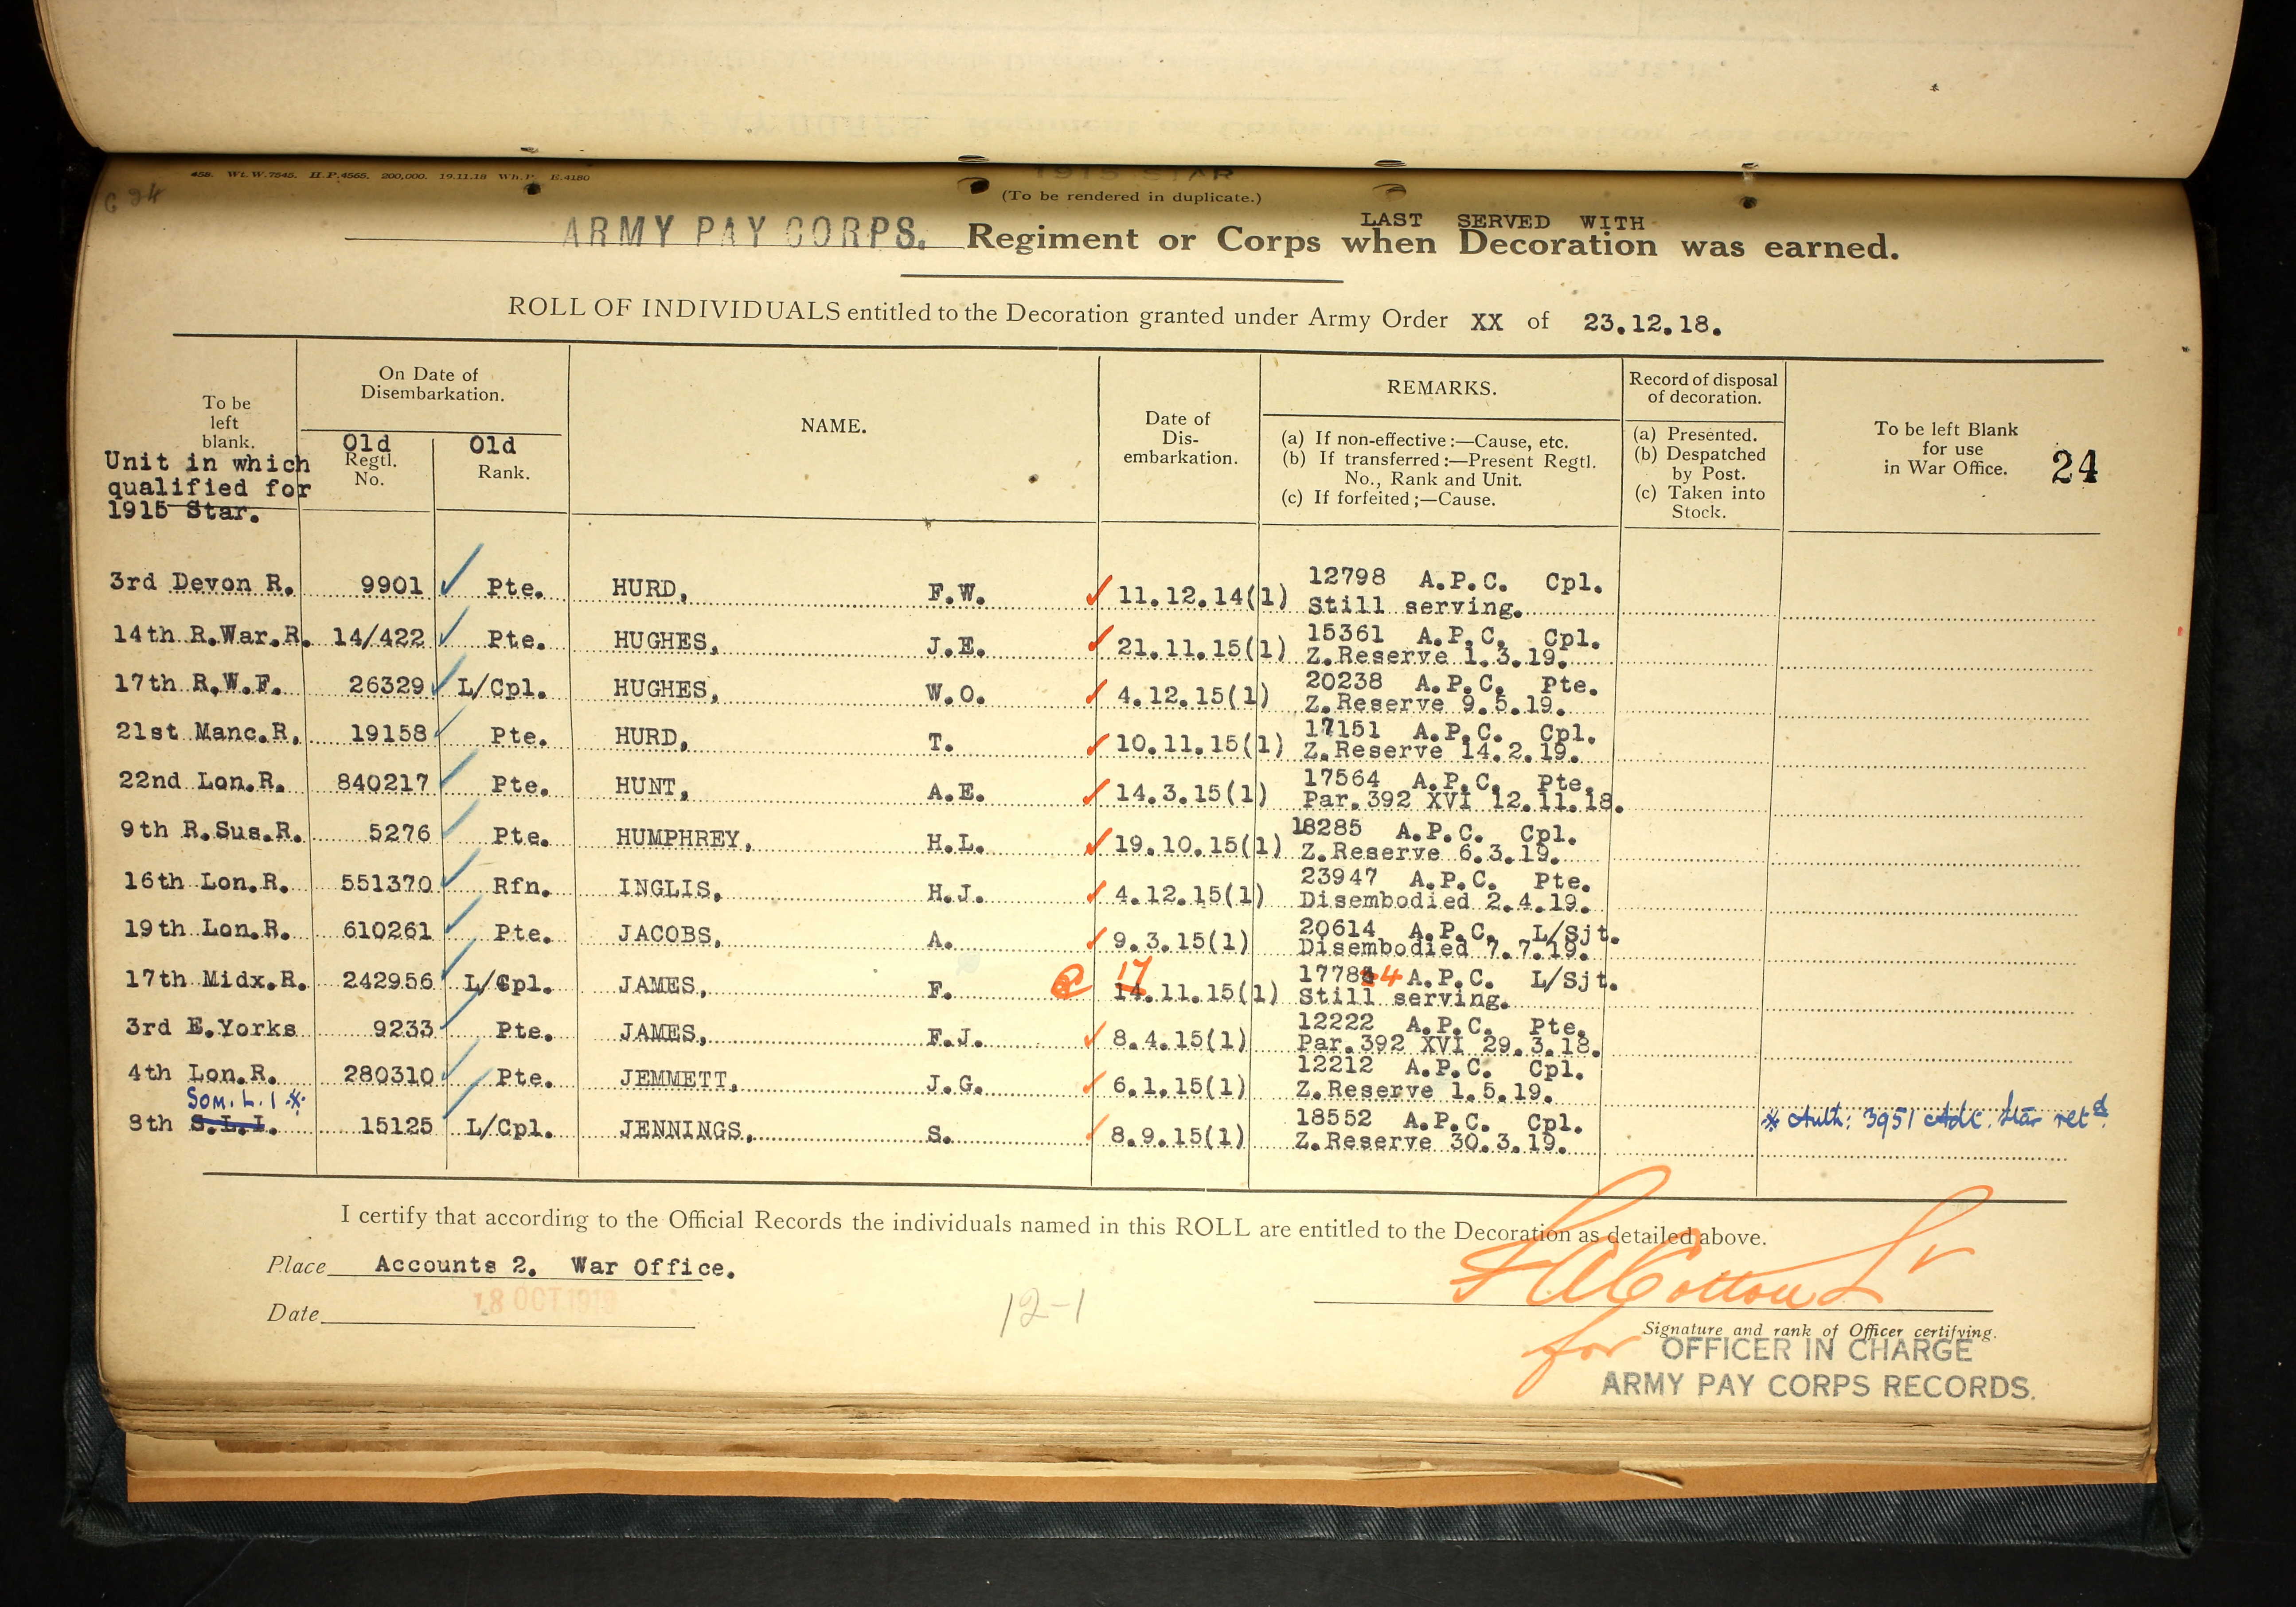 458. Wt.W.7545. H.P.4565. 200,000. 19.11.18 Wh.P. E.4180
1915 STAR
(To be rendered in duplicate.)
LAST SERVED WITH
ARMY PAY CORPS. Regiment or Corps when Decoration was earned.
ROLL OF INDIVIDUALS entitled to the Decoration granted under Army Order XX of 23.12.18.
To be left blank.
Unit in which qualified for 1915 Star.
On Date of Disembarkation.
Old Regtl. No.
Old Rank.
NAME.
Date of Dis-embarkation.
REMARKS.
(a) If non-effective:—Cause, etc.
(b) If transferred:—Present Regtl. No., Rank and Unit.
(c) If forfeited;—Cause.
Record of disposal of decoration.
(a) Presented.
(b) Despatched by Post.
(c) Taken into Stock.
To be left Blank for use in War Office.
24
3rd Devon R. 9901 Pte. HURD, F.W. 11.12.14(1) 12798 A.P.C. Cpl.
Still serving.
14th R.War.R. 14/422 Pte. HUGHES, J.E. 21.11.15(1) 15361 A.P.C. Cpl.
Z.Reserve 1.3.19.
17th R.W.F. 26329 L/Cpl. HUGHES, W.O. 4.12.15(1) 20238 A.P.C. Pte.
Z.Reserve 9.5.19.
21st Manc.R. 19158 Pte. HURD, T. 10.11.15(1) 17151 A.P.C. Cpl.
Z.Reserve 14.2.19.
22nd Lon.R. 840217 Pte. HUNT, A.E. 14.3.15(1) 17564 A.P.C. Pte.
Par.392 XVI 12.11.18.
9th R.Sus.R. 5276 Pte. HUMPHREY, H.L. 19.10.15(1) 18285 A.P.C. Cpl.
Z.Reserve 6.3.19.
16th Lon.R. 551370 Rfn. INGLIS, H.J. 4.12.15(1) 23947 A.P.C. Pte.
Disembodied 2.4.19.
19th Lon.R. 610261 Pte. JACOBS, A. 9.3.15(1) 20614 A.P.C. L/Sjt.
Disembodied 7.7.19.
17
17th Midx.R. 242956 L/Cpl. JAMES, F. 14.11.15(1) 1778 4 A.P.C. L/Sjt.
Still serving.
3rd E.Yorks 9233 Pte. JAMES, F.J. 8.4.15(1) 12222 A.P.C. Pte.
Par.392 XVI 29.3.18.
4th Lon.R. 280310 Pte. JEMMETT, J.G. 6.1.15(1) 12212 A.P.C. Cpl.
Z.Reserve 1.5.19.
Som. L. I *
8th S.L.I. 15125 L/Cpl. JENNINGS, S. 8.9.15(1) 18552 A.P.C. Cpl. * Auth: 3951 Adt. Star retd.
Z.Reserve 30.3.19.
I certify that according to the Official Records the individuals named in this ROLL are entitled to the Decoration as detailed above.
Place Accounts 2. War Office.
Date 18 OCT 1919
12-1
Cotton Lr
Signature and rank of Officer certifying.
for OFFICER IN CHARGE
ARMY PAY CORPS RECORDS.